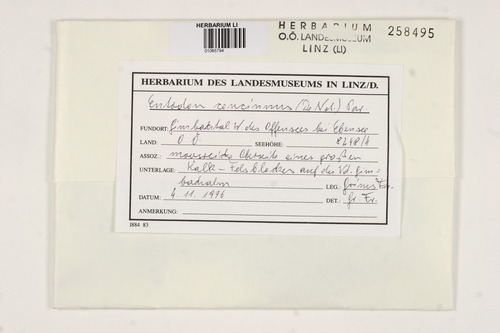 HERBARIUM LI
01065794
HERBARIUM
O.Ö. LANDESMUSEUM
LINZ (LI)
258495
HERBARIUM DES LANDESMUSEUMS IN LINZ/D.
Entodon concinnus (De Not.) Par.
FUNDORT: W des Offensees bei Ebensee
LAND: O.Ö. SEEHÖHE: 8248/1
ASSOZ.: moosreiche Oberseite eines großen
UNTERLAGE: Kalk-Felsblockes auf der
LEG.: Grims Fr.
DATUM: 4.11.1996 DET.: Gr. Fr.
ANMERKUNG:
I884 83